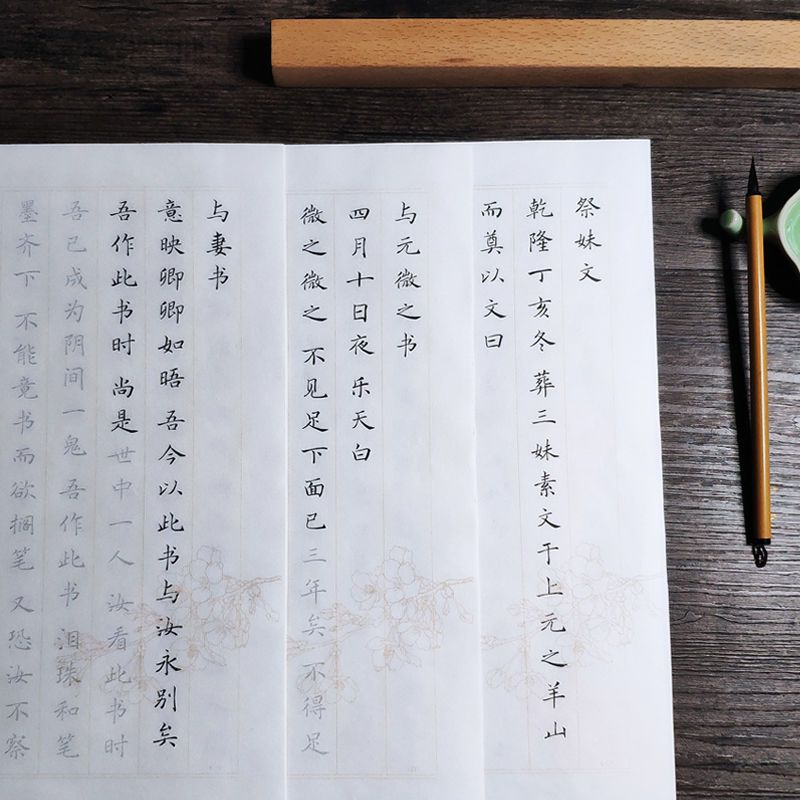 祭妹文
乾隆丁亥冬 葬三妹素文于上元之羊山
而奠以文曰
与元微之书
四月十日夜 乐天白
微之微之 不见足下面已三年矣 不得足
与妻书
意映卿卿如晤 吾今以此书与汝永别矣
吾作此书时 尚是世中一人 汝看此书时
吾已成为阴间一鬼 吾作此书 泪珠和笔
墨齐下 不能竟书而欲搁笔 又恐汝不察